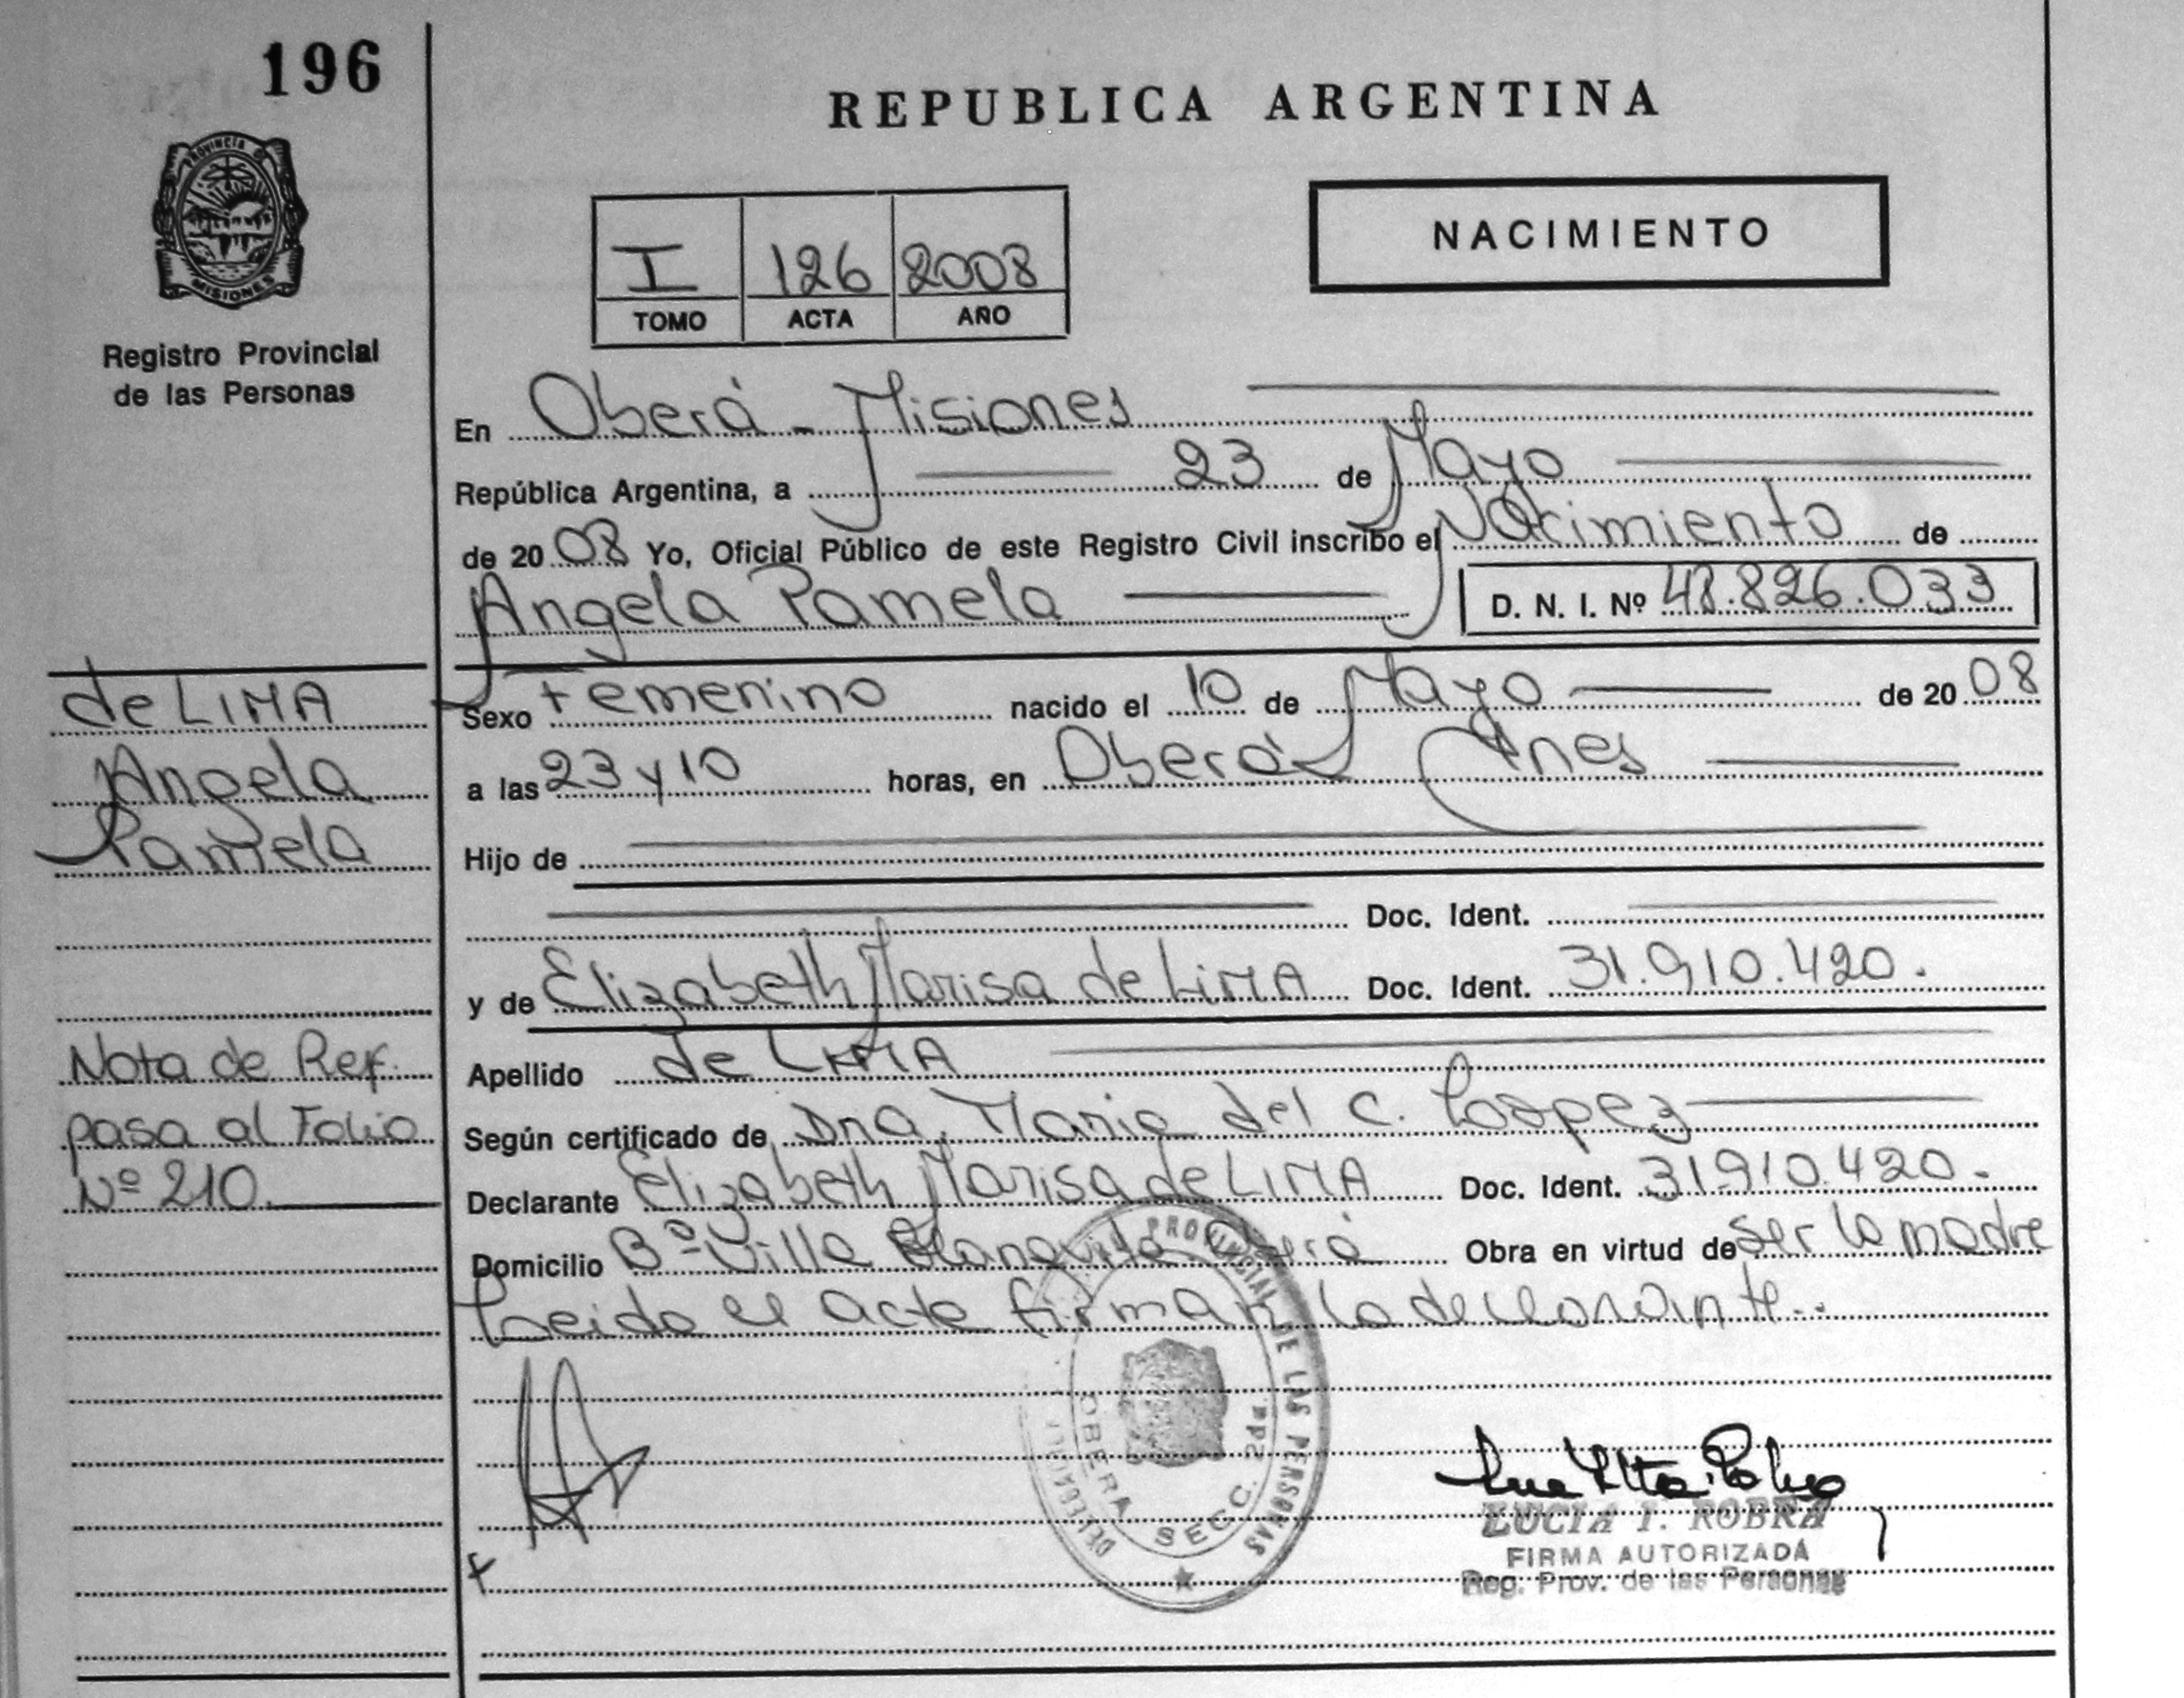 196
REPUBLICA ARGENTINA
PROVINCIA D
MISIONES
Registro Provincial
de las Personas
NACIMIENTO
I 126 2008
TOMO ACTA AÑO
En Oberá - Misiones
República Argentina, a 23 de Mayo
de 20 08 Yo, Oficial Público de este Registro Civil inscribo el Nacimiento de
Angela Pamela D. N. I. Nº 48.826.033
de LIMA
Angela
Pamela
Sexo Femenino nacido el 10 de Mayo de 20 08
a las 23 y 10 horas, en Oberá Mnes
Hijo de
Doc. Ident.
y de Elizabeth Marisa de LiMA Doc. Ident. 31.910.420.
Nota de Ref.
pasa al Folio
Nº 210.
Apellido de LIMA
Según certificado de Dra. Maria del C. Loopez
Declarante Elizabeth Marisa de LIMA Doc. Ident. 31.910.420.
Domicilio Bº Villa Blanquita Oberá Obra en virtud de ser la madre
Leido el acta firman la declarante..
PROVINCIAL DE LAS PERSONAS
OBERA SECC. 2da
LUCIA I. ROBRA
FIRMA AUTORIZADA
Reg. Prov. de las Personas